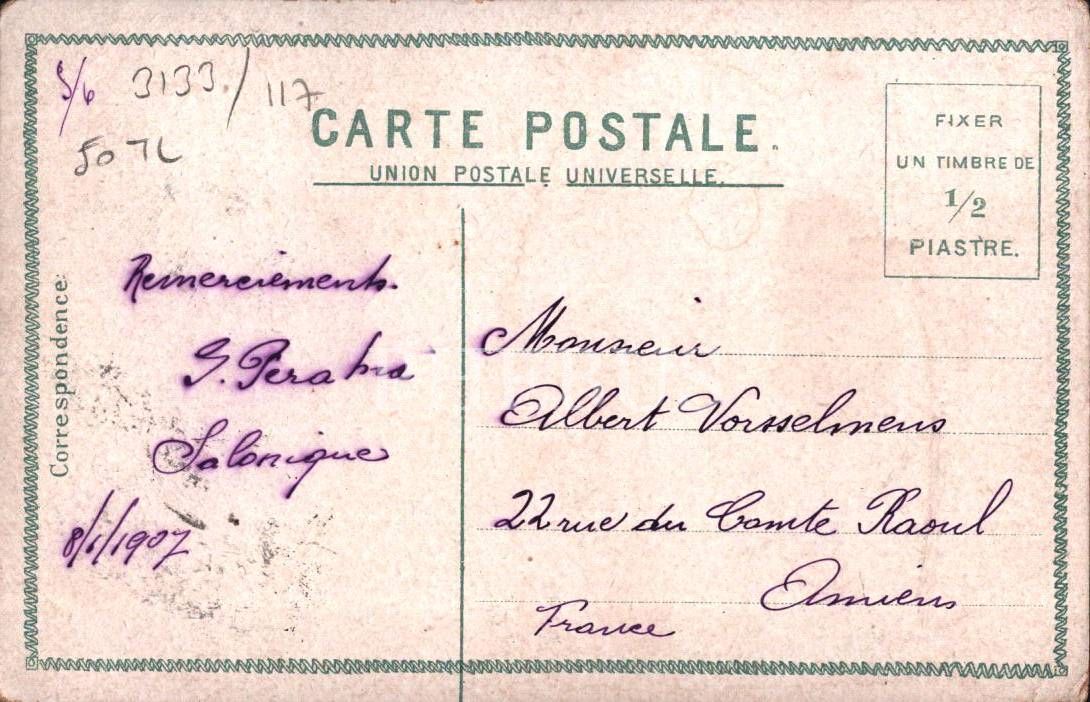 S/6 3133./117
50 TL
CARTE POSTALE.
UNION POSTALE UNIVERSELLE.
FIXER
UN TIMBRE DE
1/2
PIASTRE.
Correspondence:
Remerciements.
Salonique
8/1/1907
Monsieur
Albert Vorsselmens
22 rue du Comte Raoul
Amiens
France